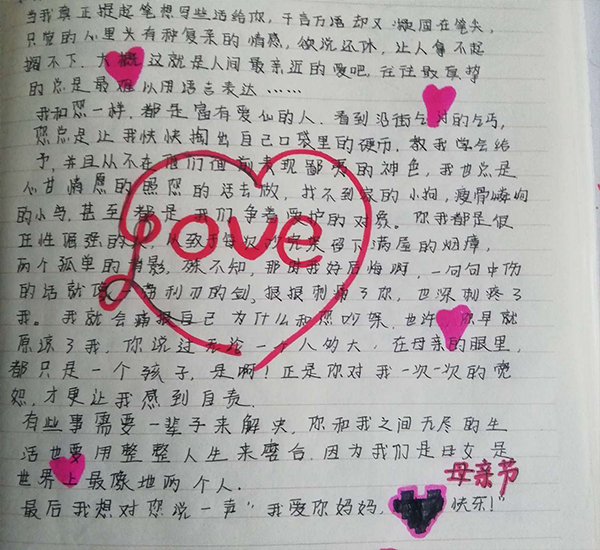 当我真正提起笔想写些话给你，千言万语却又凝固在笔尖，
只觉的心里头有种复杂的情感，欲说还休，让人拿不起
搁不下，大概这就是人间最亲近的爱吧，往往最真挚
的总是最难以用语言表达……
我和您一样，都是富有爱仙的人，看到沿街乞讨的乞丐，
您总是让我快快掏出自己口袋里的硬币，教我学会给
予，并且从不在他们面前表现鄙夷的神色，我也总是
心甘情愿的照您的话去做，找不到家的小狗，瘦骨嶙峋
的小鸟，甚至都是我们争着要护的对象。你我都是很
正性倔强的人，以致于每次吵完架留下满屋的烟障，
两个孤单的背影，殊不知，那时我好后悔啊，一句句中伤
的话就像一节利刃的剑，狠狠刺痛了你，也深刺疼了
我。我就会痛恨自己为什么和您吵架，也许，你早就
原谅了我，你说过无论一个人多大，在母亲的眼里，
都只是一个孩子，是啊！正是你对我一次一次的宽
恕，才更让我感到自责．
有些事需要一辈子来解决，你和我之间无尽的生
活也要用整整人生来磨合，因为我们是母女是
世界上最像地两个人．
母亲节
最后我想对您说一声"我爱你妈妈，快乐！"
Love